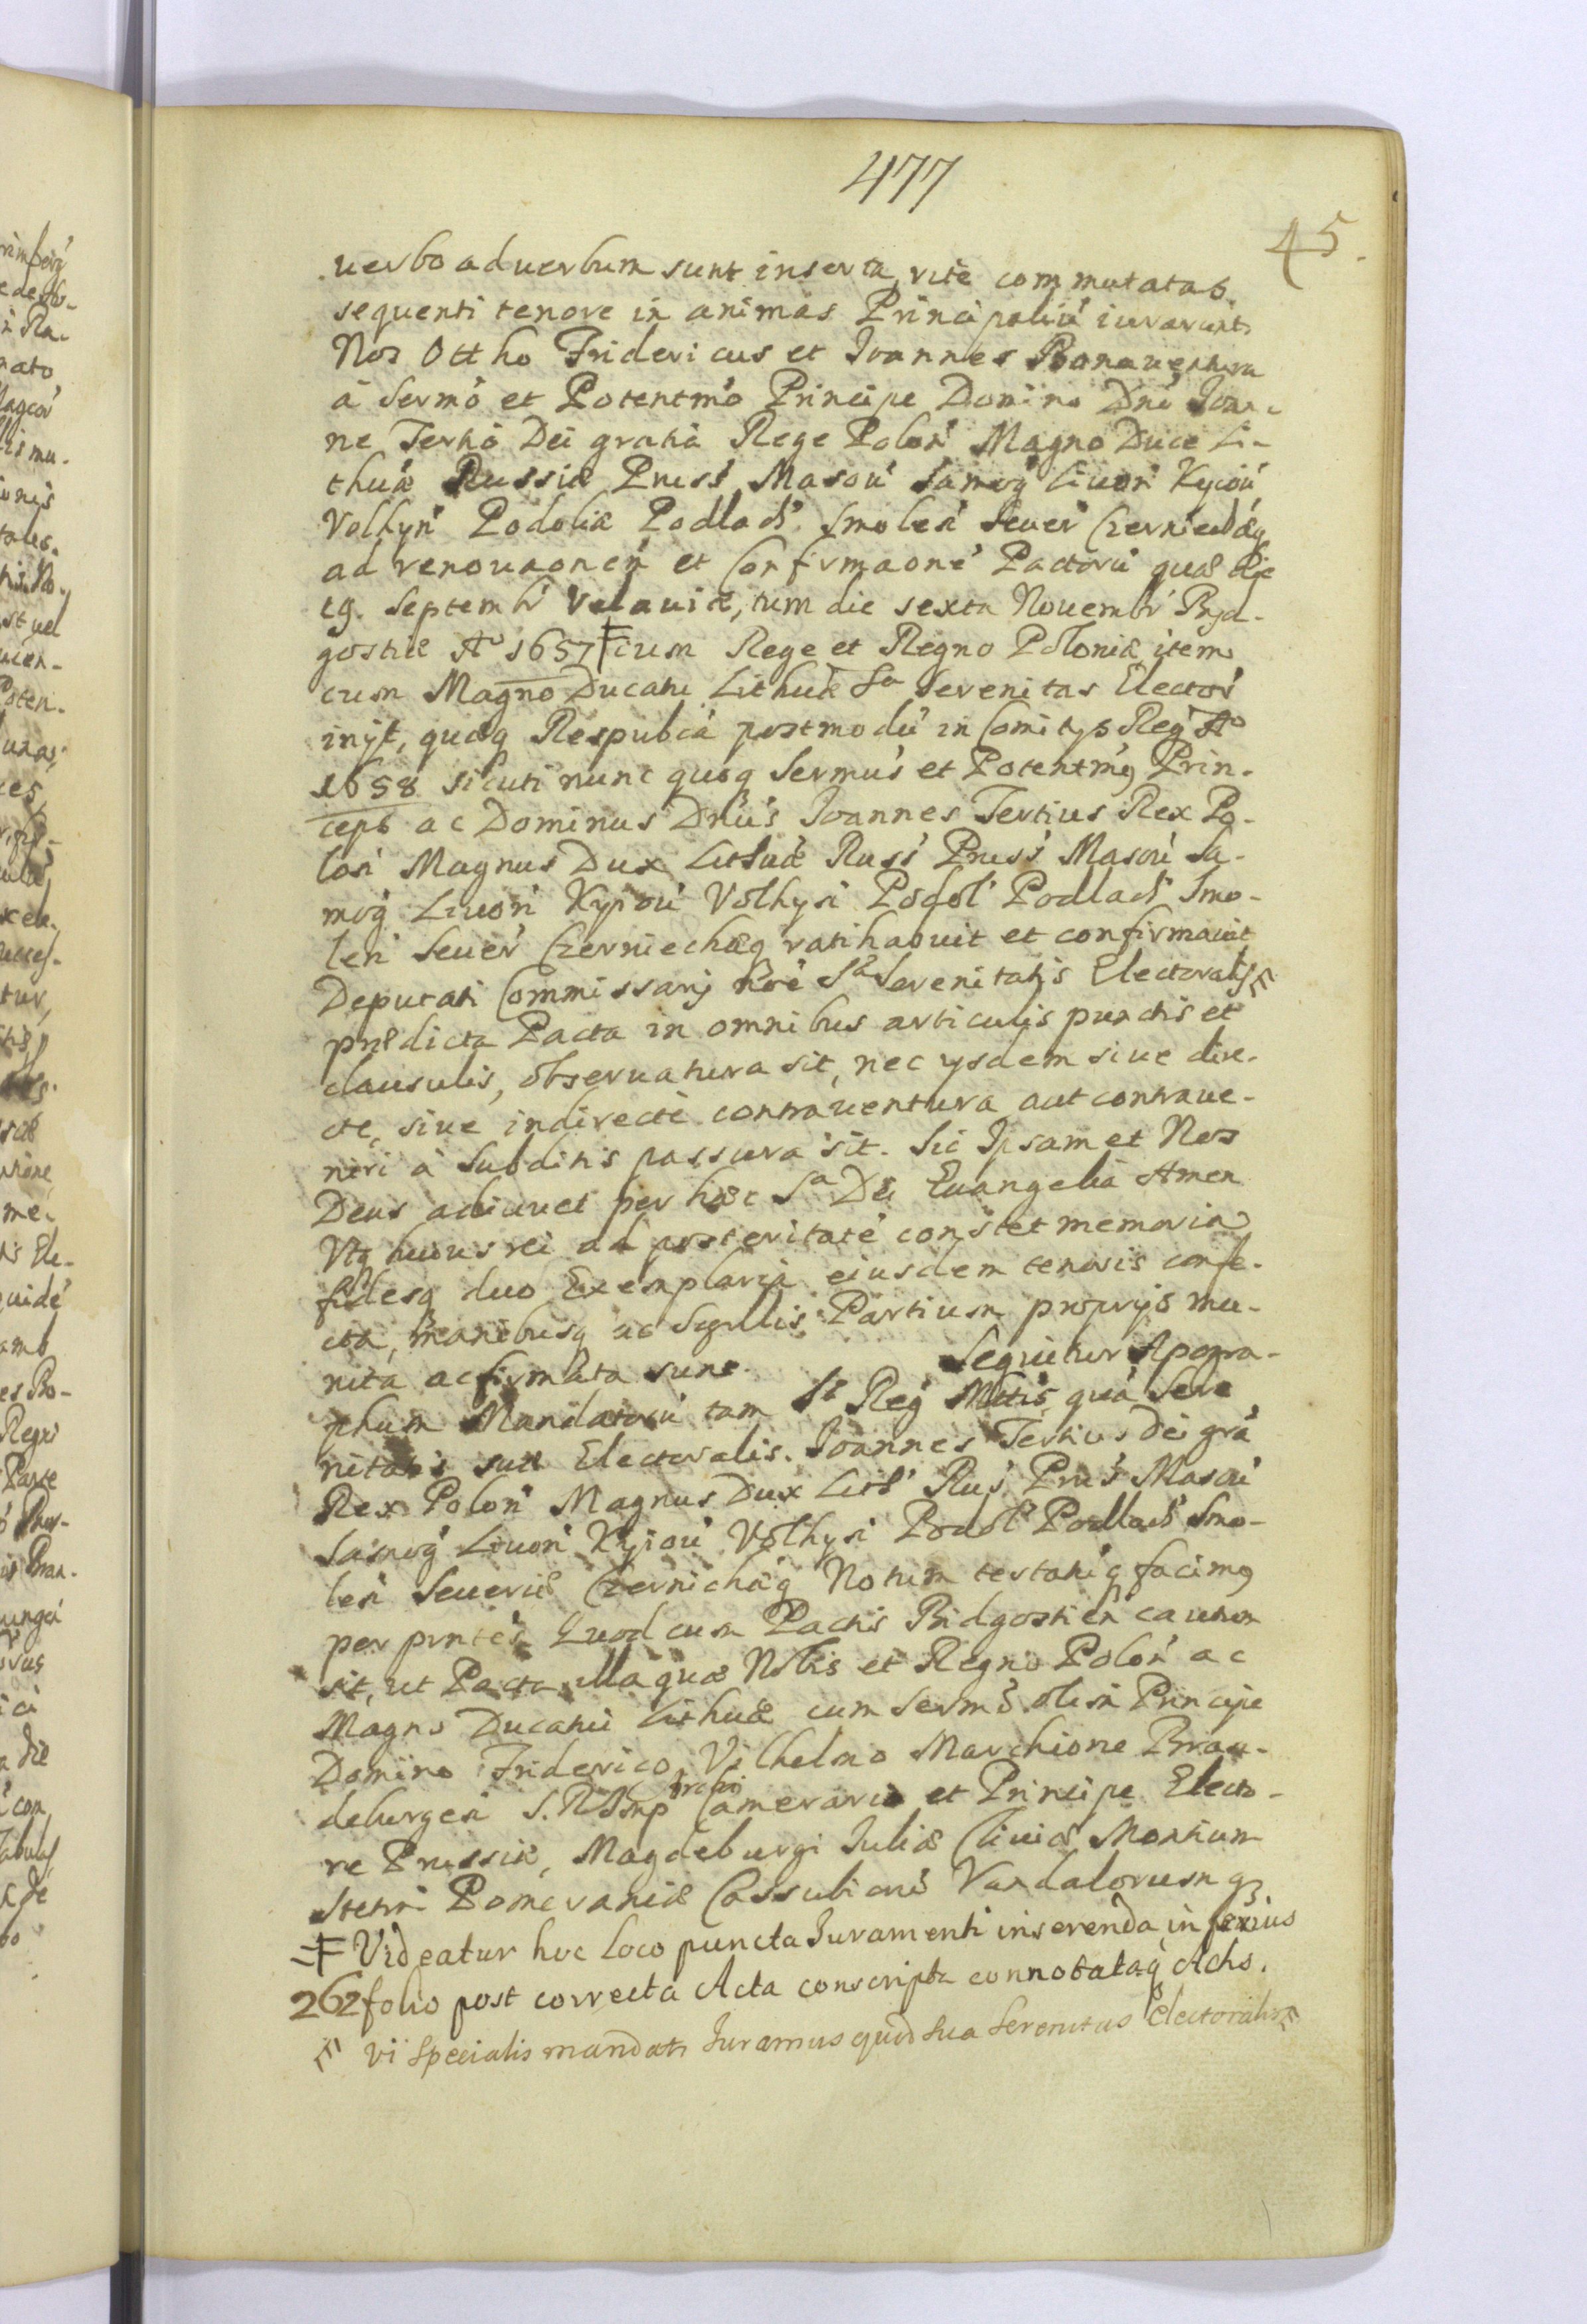 477
45.
uerbo ad uerbum sunt inserta, rite commutatas
sequenti tenore in animas Principaliu iurarunt
Nos Ottho Fridericus et Joannes Bonauentura
à Sermo et Potentmo Principe Domino Dno Joan-
ne Tertio Dei gratia Rege Polon Magno Duce Li-
thuæ Russiæ Pruss Masou Samog Liuon Kyiou
Volhyn Podoliæ Podlach Smolen Seuer Czerniechæq
ad renouaonem et Confirmaone Pactoru quæ die
19. Septembr Velauiæ, tum die sexta Nouembr Byd-
gostiæ Ao 1657 ╪ cum Rege et Regno Poloniæ item
cum Magno Ducatu Lithuæ Sa Serenitas Elector
inijt, quæq Respubca postmodu in Comitijs Reg Ao
1658 sicuti nunc quoq Sermus et Potentmg Prin-
ceps ac Dominus Dnus Joannes Tertius Rex Po-
lon Magnus Dux Lithuæ Russ Pruss Masou Sa-
mog Liuon Kyiou Volhyn Podol Podlach Smo-
len Seuer Czerniechæq ratihabuit et confirmauit
Deputati Commissarij Nroe Sa Serenitatis Electoralis
prædicta Pacta in omnibus articulis punctis et
clausulis, obseruatura sit, nec ysdem siue dire-
cte, siue indirecte contrauentura aut contraue-
niri à Subditis passura sit. Sic Ipsam et Nos
Deus adiuuet per hæc Sa Dei Euangelia Amen
Vtq huius rei ad posteritate constet memoria
fidesq duo Exemplaria eiusdem tenoris confe-
cta, manibusq ac Sigillis Partium proprijs mu-
nita ac firmata sunt. Sequitur Apogra-
phum Mandatoru tam Sæ Reg Mttis, qua Sere
nitatis suæ Electoralis. Joannes Tertius Dei gra
Rex Polon Magnus Dux Lith Rus Prus Masou
Samog Liuon Kyiou Volhyn Podol Podlach Smo-
len Seueriæ Czernichæq Notum testatuq facimg
per pntes Quod cum Pactis Bidgostien cautum
sit, ut Pacta illa quæ Nobis et Regno Polon ac
Magno Ducatui Lithuæ cum Sermo olim Principe
Domino Friderico Vilhelmo Marchione Bran-
deburgen S. R Imp Archi Camerario et Principe Electo-
re Prussiæ, Magdeburgi Juliæ Cliuiæ Montium
Stetini Pomeraniæ Cassubioru Vandalorumq
╪ Videatur hoc loco puncta Juramenti inserenda inferius
262 folio post correcta Acta conscripta connotataq Actis.
vi Specialis mandati Juramus quod Sua Serenitas Electoralis